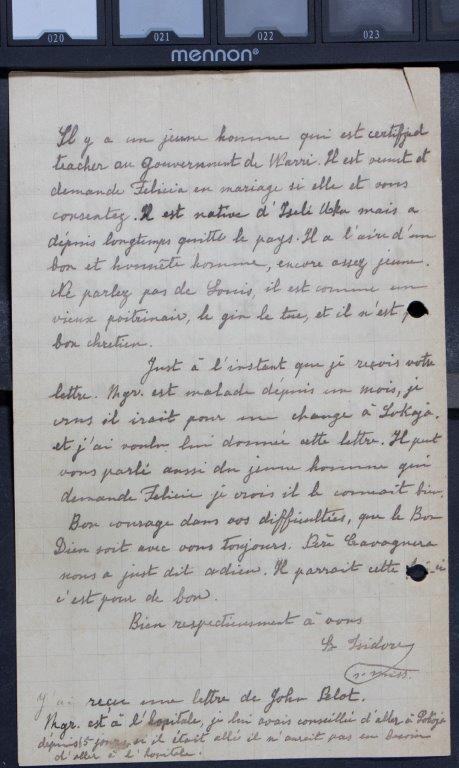 020 021 022 023
mennon®
Il y a un jeune homme qui est certifjed
teacher au Gouvernment de Warri. Il est venut et
demande Felicia en mariage si elle et vous
consentez. Il est native d'Iseli Uku mais a
dépuis longtemps quitté le pays. Il a l'aire d'un
bon et hunnête homme, encore assez jeune.
Ne parlez pas de Louis, il est comme un
vieux poitrinair, le gin le tue, et il n'est
bon chretien.
Just à l'instant que je reçois votre
lettre. Mgr. est malade dépuis un mois, je
crus il irait pour une change à Lokoja.
et j'ai voulu lui donnée cette lettre. Il peut
vous parlé aussi du jeune homme qui
demande Felicie je crois il le connait bien.
Bon courage dans vos difficultées, que le Bon
Dieu soit avec vous toujours. Père Cavagnera
nous a just dit adieu. Il parrait cette
c'est pour de bon.
Bien respectieusement à vous
Sr Isidore
n. miss.
J'ai reçue une lettre de John Pelot.
Mgr. est à l'hopitale, je lui avais conseillée d'aller à Lokoja
dépuis 15 jours, si il était allé il n'aurait pas eu besoin
d'aller à l'hopitale.